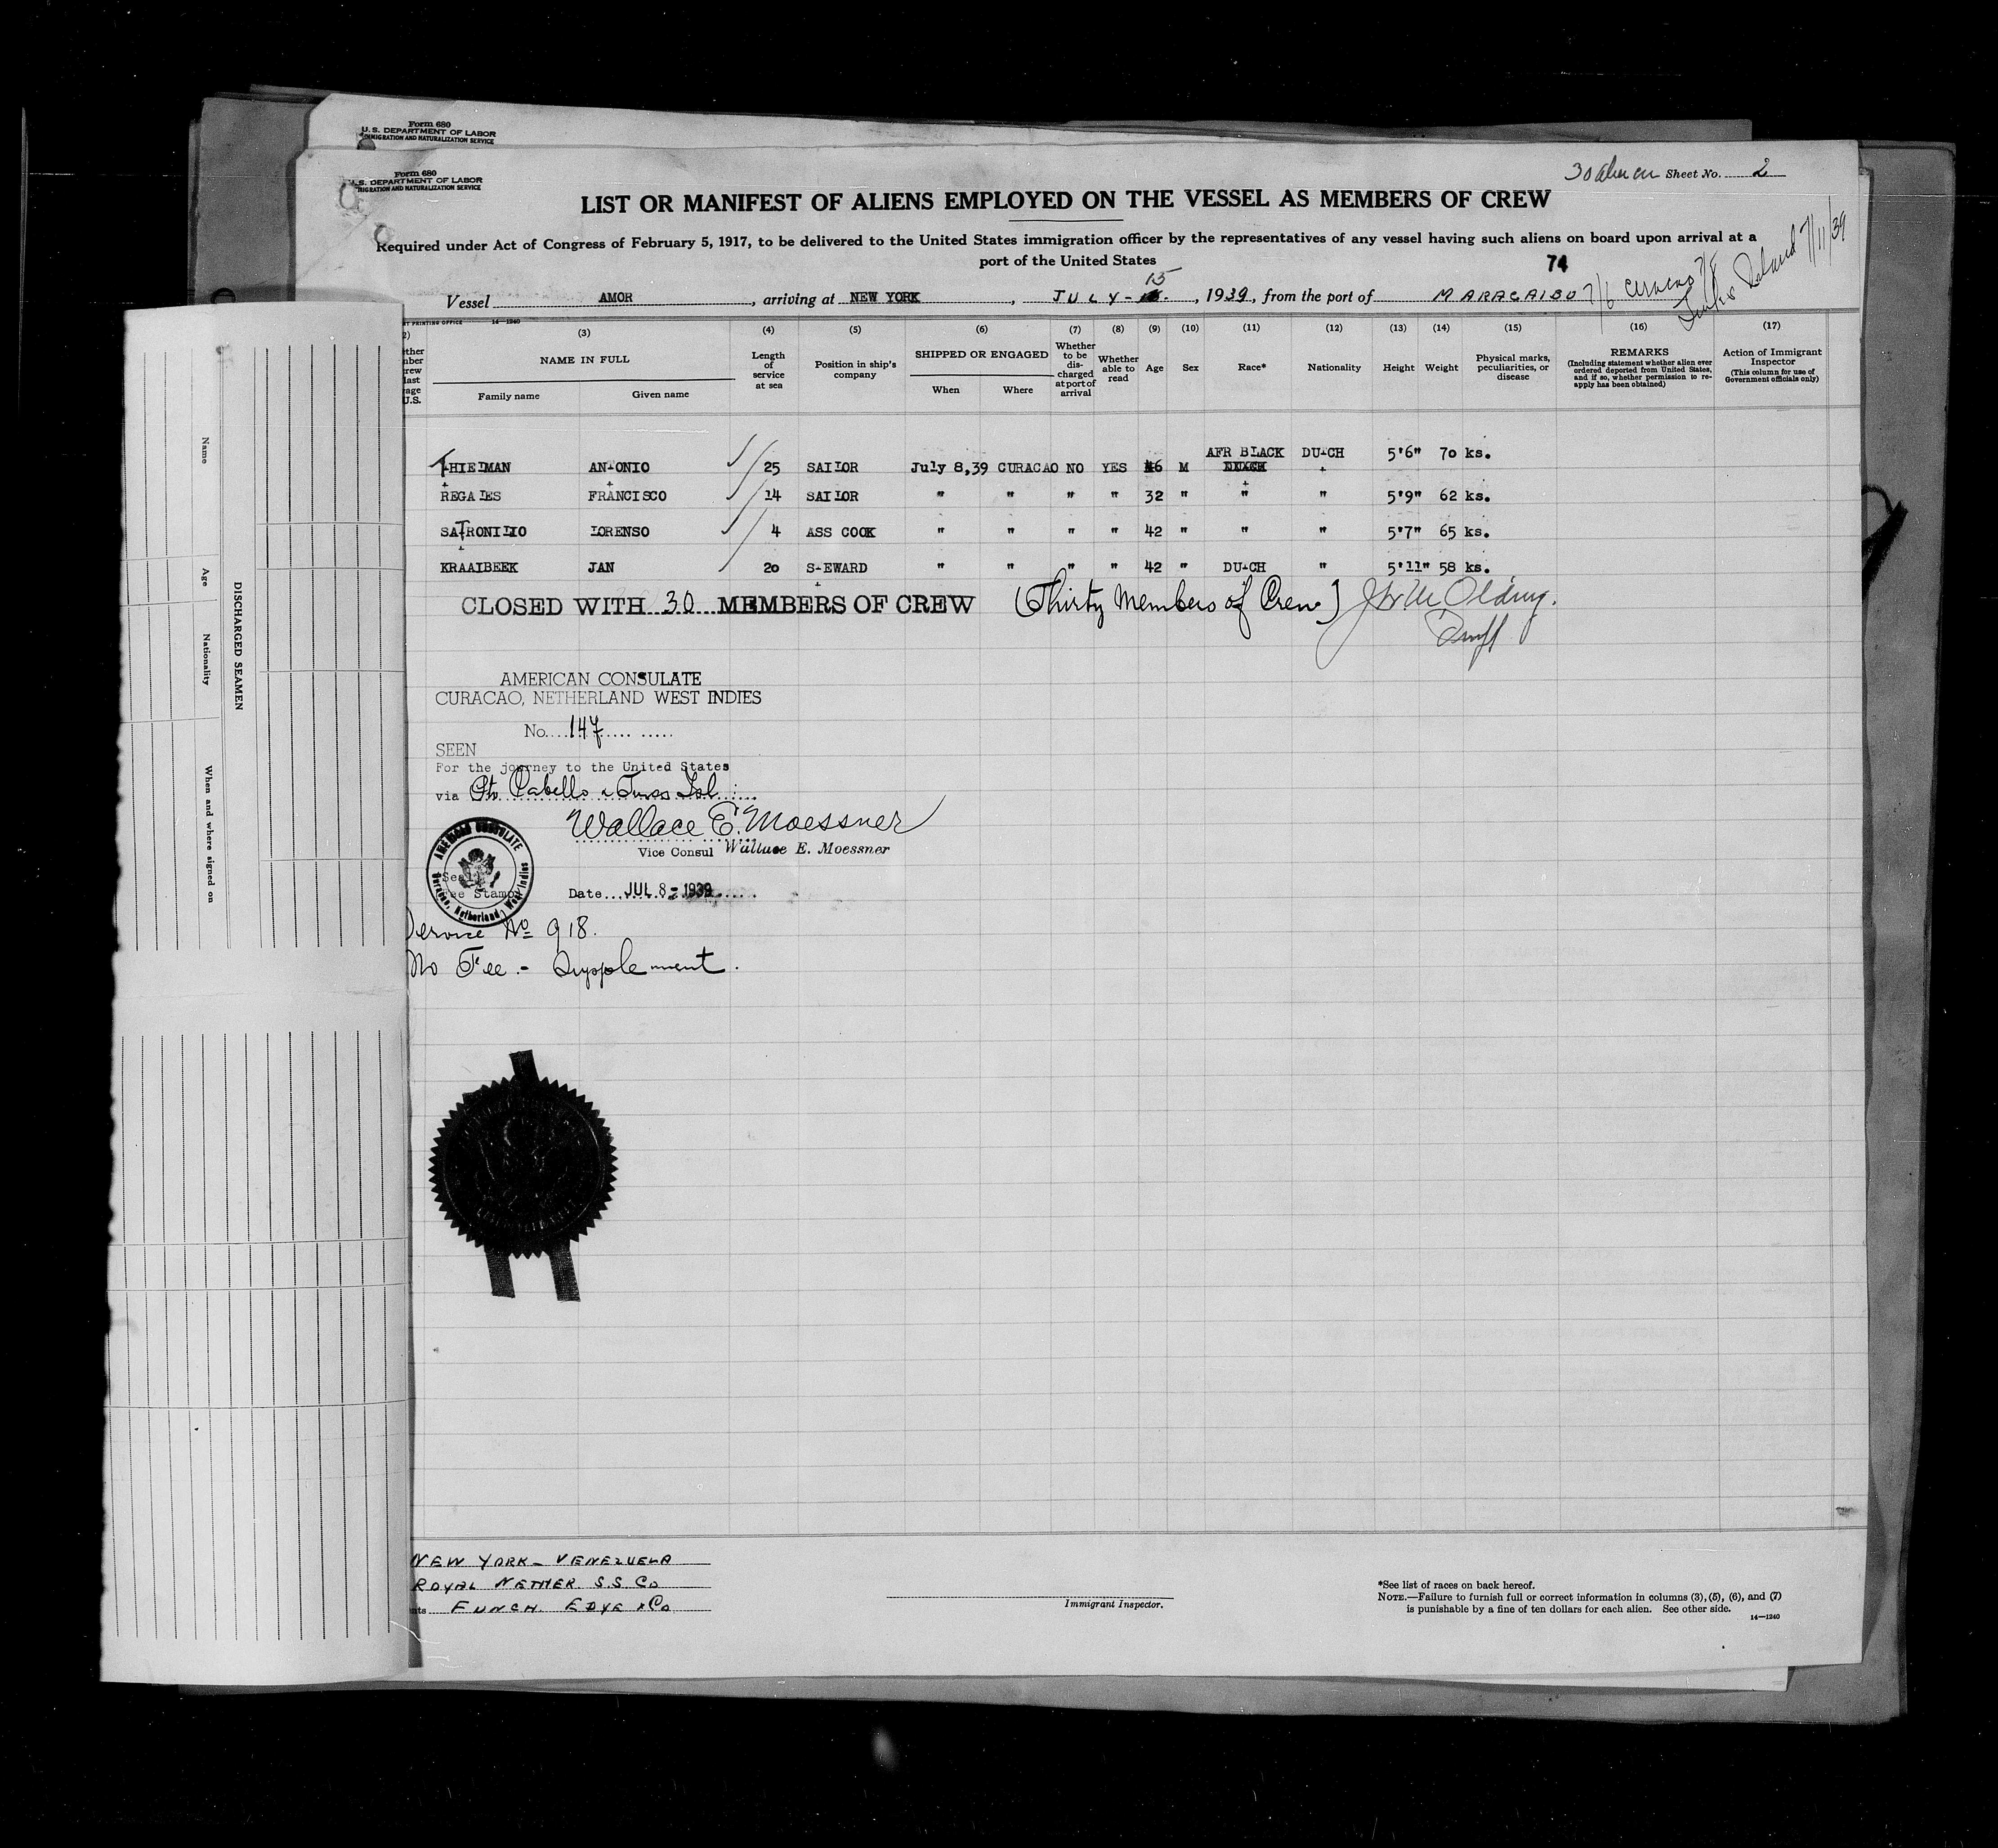 Form 680
U.S. DEPARTMENT OF LABOR
IMMIGRATION AND NATURALIZATION SERVICE
Form 680
U.S. DEPARTMENT OF LABOR
IMMIGRATION AND NATURALIZATION SERVICE
30 Sheet No. 2
LIST OR MANIFEST OF ALIENS EMPLOYED ON THE VESSEL AS MEMBERS OF CREW
Required under Act of Congress of February 5, 1917, to be delivered to the United States immigration officer by the representatives of any vessel having such aliens on board upon arrival at a
port of the United States
74
15
Vessel AMOR, arriving at NEW YORK, JULY-, 1939, from the port of MARACAIBO 7/6 Curacao 7/8
Turks Island 7/11/39
PRINTING OFFICE 14-1240
(3) (4) (5) (6) (7) (8) (9) (10) (11) (12) (13) (14) (15) (16) (17)
NAME IN FULL
Family name Given name
Length of service at sea
Position in ship's company
SHIPPED OR ENGAGED
When Where
Whether to be discharged at port of arrival
Whether able to read
Age
Sex
Race*
Nationality
Height
Weight
Physical marks, peculiarities, or disease
REMARKS
(Including statement whether alien ever ordered deported from United States, and if so, whether permission to reapply has been obtained)
Action of Immigrant Inspector
(This column for use of Government officials only)
THIELMAN ANTONIO 25 SAILOR July 8,39 CURACAO NO YES 46 M AFR BLACK DUTCH 5'6" 70 ks.
REGALES FRANCISCO 14 SAILOR " " " " 32 " " " 5'9" 62 ks.
SATRONILIO LORENSO 4 ASS COOK " " " " 42 " " " 5'7" 65 ks.
KRAAIBEEK JAN 20 STEWARD " " " " 42 " DUTCH " 5'11" 58 ks.
CLOSED WITH 30 MEMBERS OF CREW (Thirty Members of Crew)
AMERICAN CONSULATE
CURACAO, NETHERLAND WEST INDIES
No. 147
SEEN
For the journey to the United States
via Pto Cabello & Turks Isl
Wallace E. Moessner
Vice Consul Wallace E. Moessner
AMERICAN CONSULATE
Curacao, Netherland West Indies
Seal
Fee Stamp
Date JUL 8 - 1939
Service No 918.
No Fee. - Supplement.
DISCHARGED SEAMEN
Name
Age
Nationality
When and where signed on
NEW YORK - VENEZUELA
ROYAL NETHER. S.S. Co
FUNCH. EDYE & Co
Immigrant Inspector.
*See list of races on back hereof.
NOTE.—Failure to furnish full or correct information in columns (3), (5), (6), and (7)
is punishable by a fine of ten dollars for each alien. See other side.
14—1240